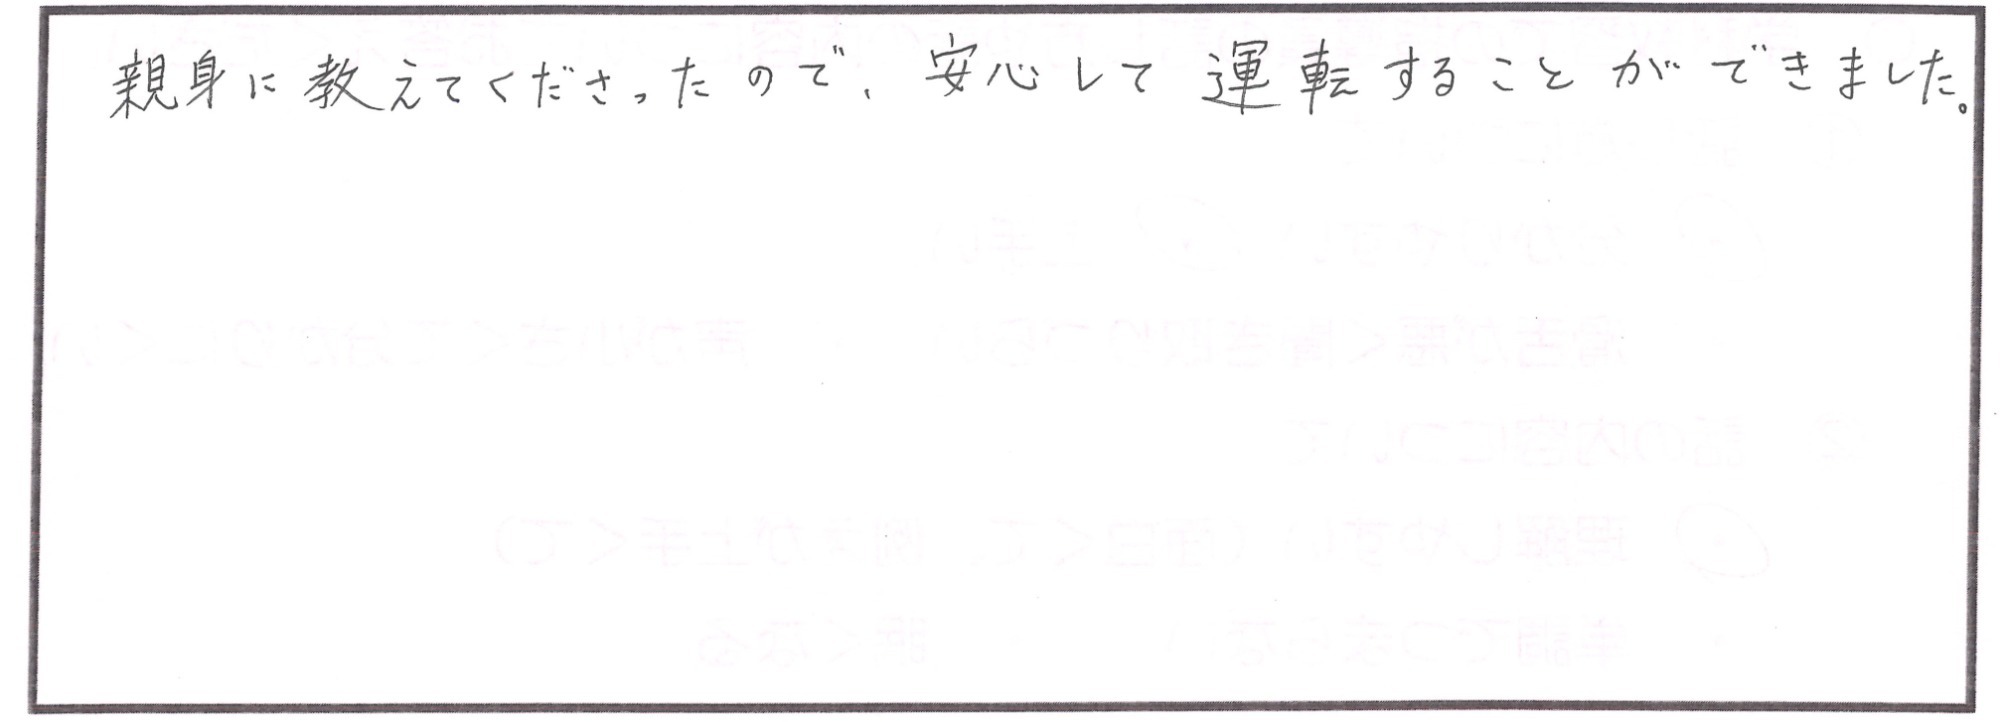 親身に教えてくださったので、安心して運転することができました。